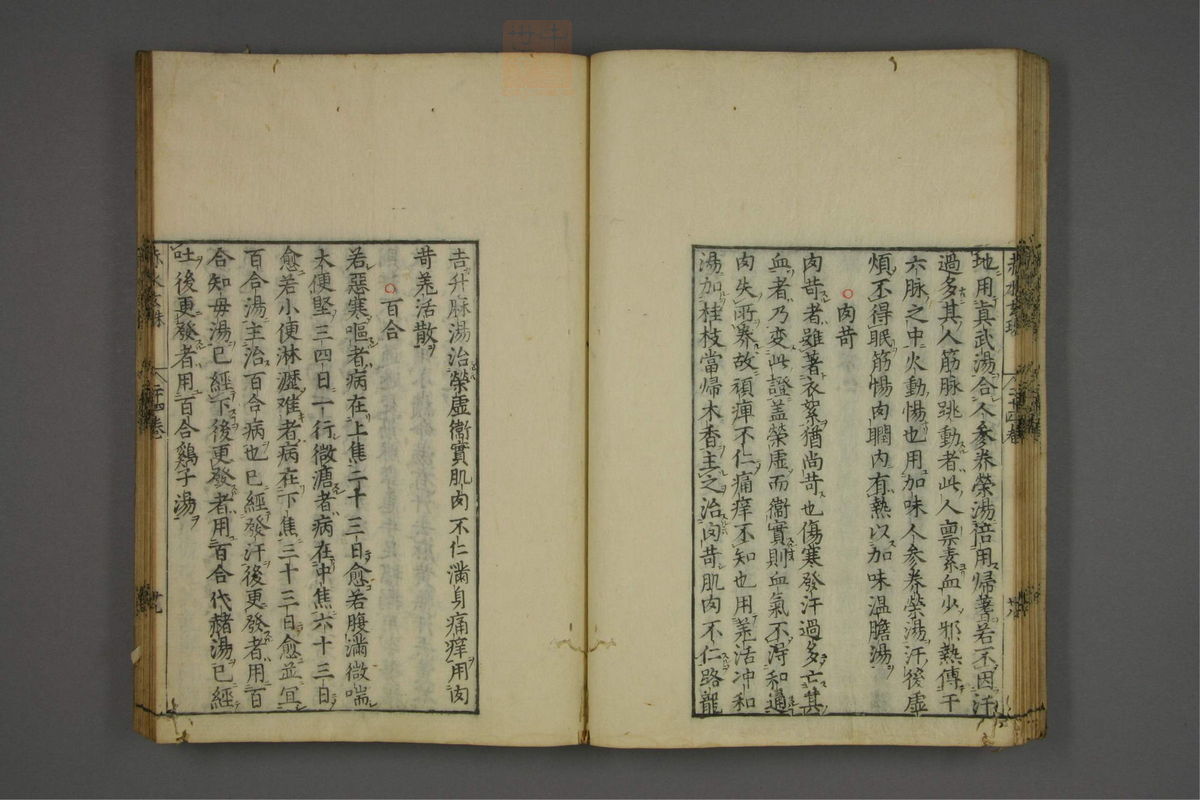 地用眞武湯合人參養榮湯倍用歸蓍若不因汗
過多其人筋脉跳動者此人禀素血少邪熱傳干
六脉之中火動惕也用加味人參養榮湯汗後虛
煩不得眠筋惕肉瞤内有熱以加味温膽湯
○肉苛
肉苛者雖著衣絮猶尚苛也傷寒發汗過多亡其
血者乃変此證盖榮虛而衞實則血氣不得和通
肉失所養故頑痺不仁痛痒不知也用羌活冲和
湯加桂枝當歸木香主之治肉苛肌肉不仁路龍
吉升麻湯治榮虛衞實肌肉不仁滿身痛痒用肉
苛羌活散
○百合
若惡寒嘔者病在上焦二十三日愈若腹滿微喘
大便堅三四日一行微溏者病在中焦六十三日
愈若小便淋瀝难者病在下焦三十三日愈並宜
百合湯主治百合病也已經發汗後更發者用百
合知母湯已經下後更發者用百合代赭湯已經
吐後更發者用百合鷄子湯